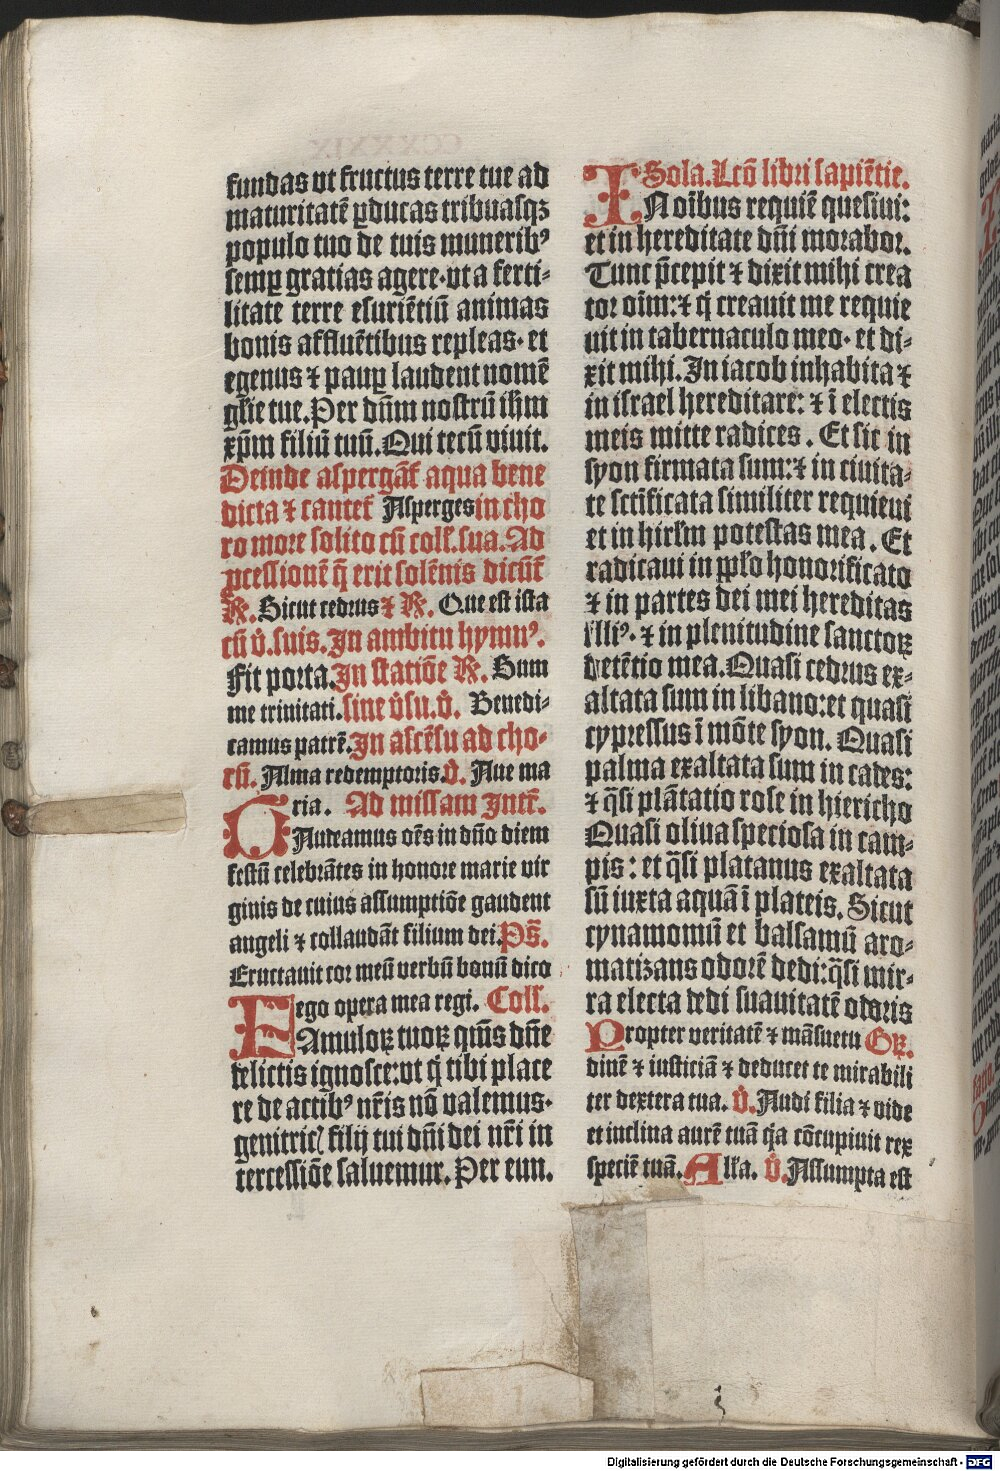 fundas vt fructus terre tue ad
maturitatē ꝓducas tribuasqꝫ
populo tuo de tuis munerib⁹
semꝑ gratias agere·vt a ferti⸗
litate terre esuriētiū animas
bonis affluētibus repleas· et
egenus ⁊ pauꝑ laudent nomē
gl̄ie tue.Per dn̄m nostrū ih̄m
xp̄m filiū tuū.Qui tecū viuit.
Deinde aspergāt᷑ aqua bene
dicta ⁊ cantet᷑ Asperges in cho
ro more solito cū coll̄.sua.Ad
ꝓcessionē q̄ erit solēnis dicūt᷑
℟. Sicut cedrus ⁊ ℟. Que est ista
cū v̄.suis.In ambitu hymn⁹.
Fit porta.In statiōe ℟. Sum
me trinitati.sine v̄su.v̄. Benedi⸗
camus patrē.In ascēsu ad cho⸗
rū. Alma redemptoris.v̄. Aue ma
ria. Ad missam Intr̄.
GAudeamus oēs in dn̄o diem
festū celebrātes in honore marie vir
ginis de cuius assumptiōe gaudent
angeli ⁊ collaudāt filium dei.Ps̄.
Eructauit cor meū verbū bonū dico
ego opera mea regi. Coll̄.
FAmuloꝝ tuoꝝ qm̄s dn̄e
delictis ignosce:vt q̄ tibi place
re de actib⁹ nr̄is nō valemus·
genitricꝭ filij tui dn̄i dei nr̄i in
tercessiōe saluemur. Per eun.
Sola.Lcō libri sapiētie.
IN oībus requiē quesiui:
et in hereditate dn̄i morabor.
Tunc p̄cepit ⁊ dixit mihi crea
tor oīm:⁊ q̄ creauit me requie
uit in tabernaculo meo· et di⸗
xit mihi.In iacob inhabita ⁊
in israel hereditare: ⁊ ī electis
meis mitte radices . Et sic in
syon firmata sum:⁊ in ciuita⸗
te scīficata similiter requieui
et in hirl̄m potestas mea . Et
radicaui in pplo honorificato
⁊ in partes dei mei hereditas
illi⁹· ⁊ in plenitudine sanctoꝝ
detētio mea.Quasi cedrus ex⸗
altata sum in libano:et quasi
cypressus ī mōte syon. Quasi
palma exaltata sum in cades:
⁊ q̄si plātatio rose in hiericho
Quasi oliua speciosa in cam⸗
pis: et q̄si platanus exaltata
sū iuxta aquā ī plateis. Sicut
cynamomū et balsamū aro⸗
matizans odorē dedi:q̄si mir⸗
ra electa dedi suauitatē odoris
Propter veritatē ⁊ māsuetu Gꝝ.
dinē ⁊ iusticiā ⁊ deducet te mirabili
ter dextera tua. v̄. Audi filia ⁊ vide
et inclina aurē tuā q̄a cōcupiuit rex
speciē tuā. All̄a. v̄. Assumpta est
Digitalisierung gefördert durch die Deutsche Forschungsgemeinschaft - DFG